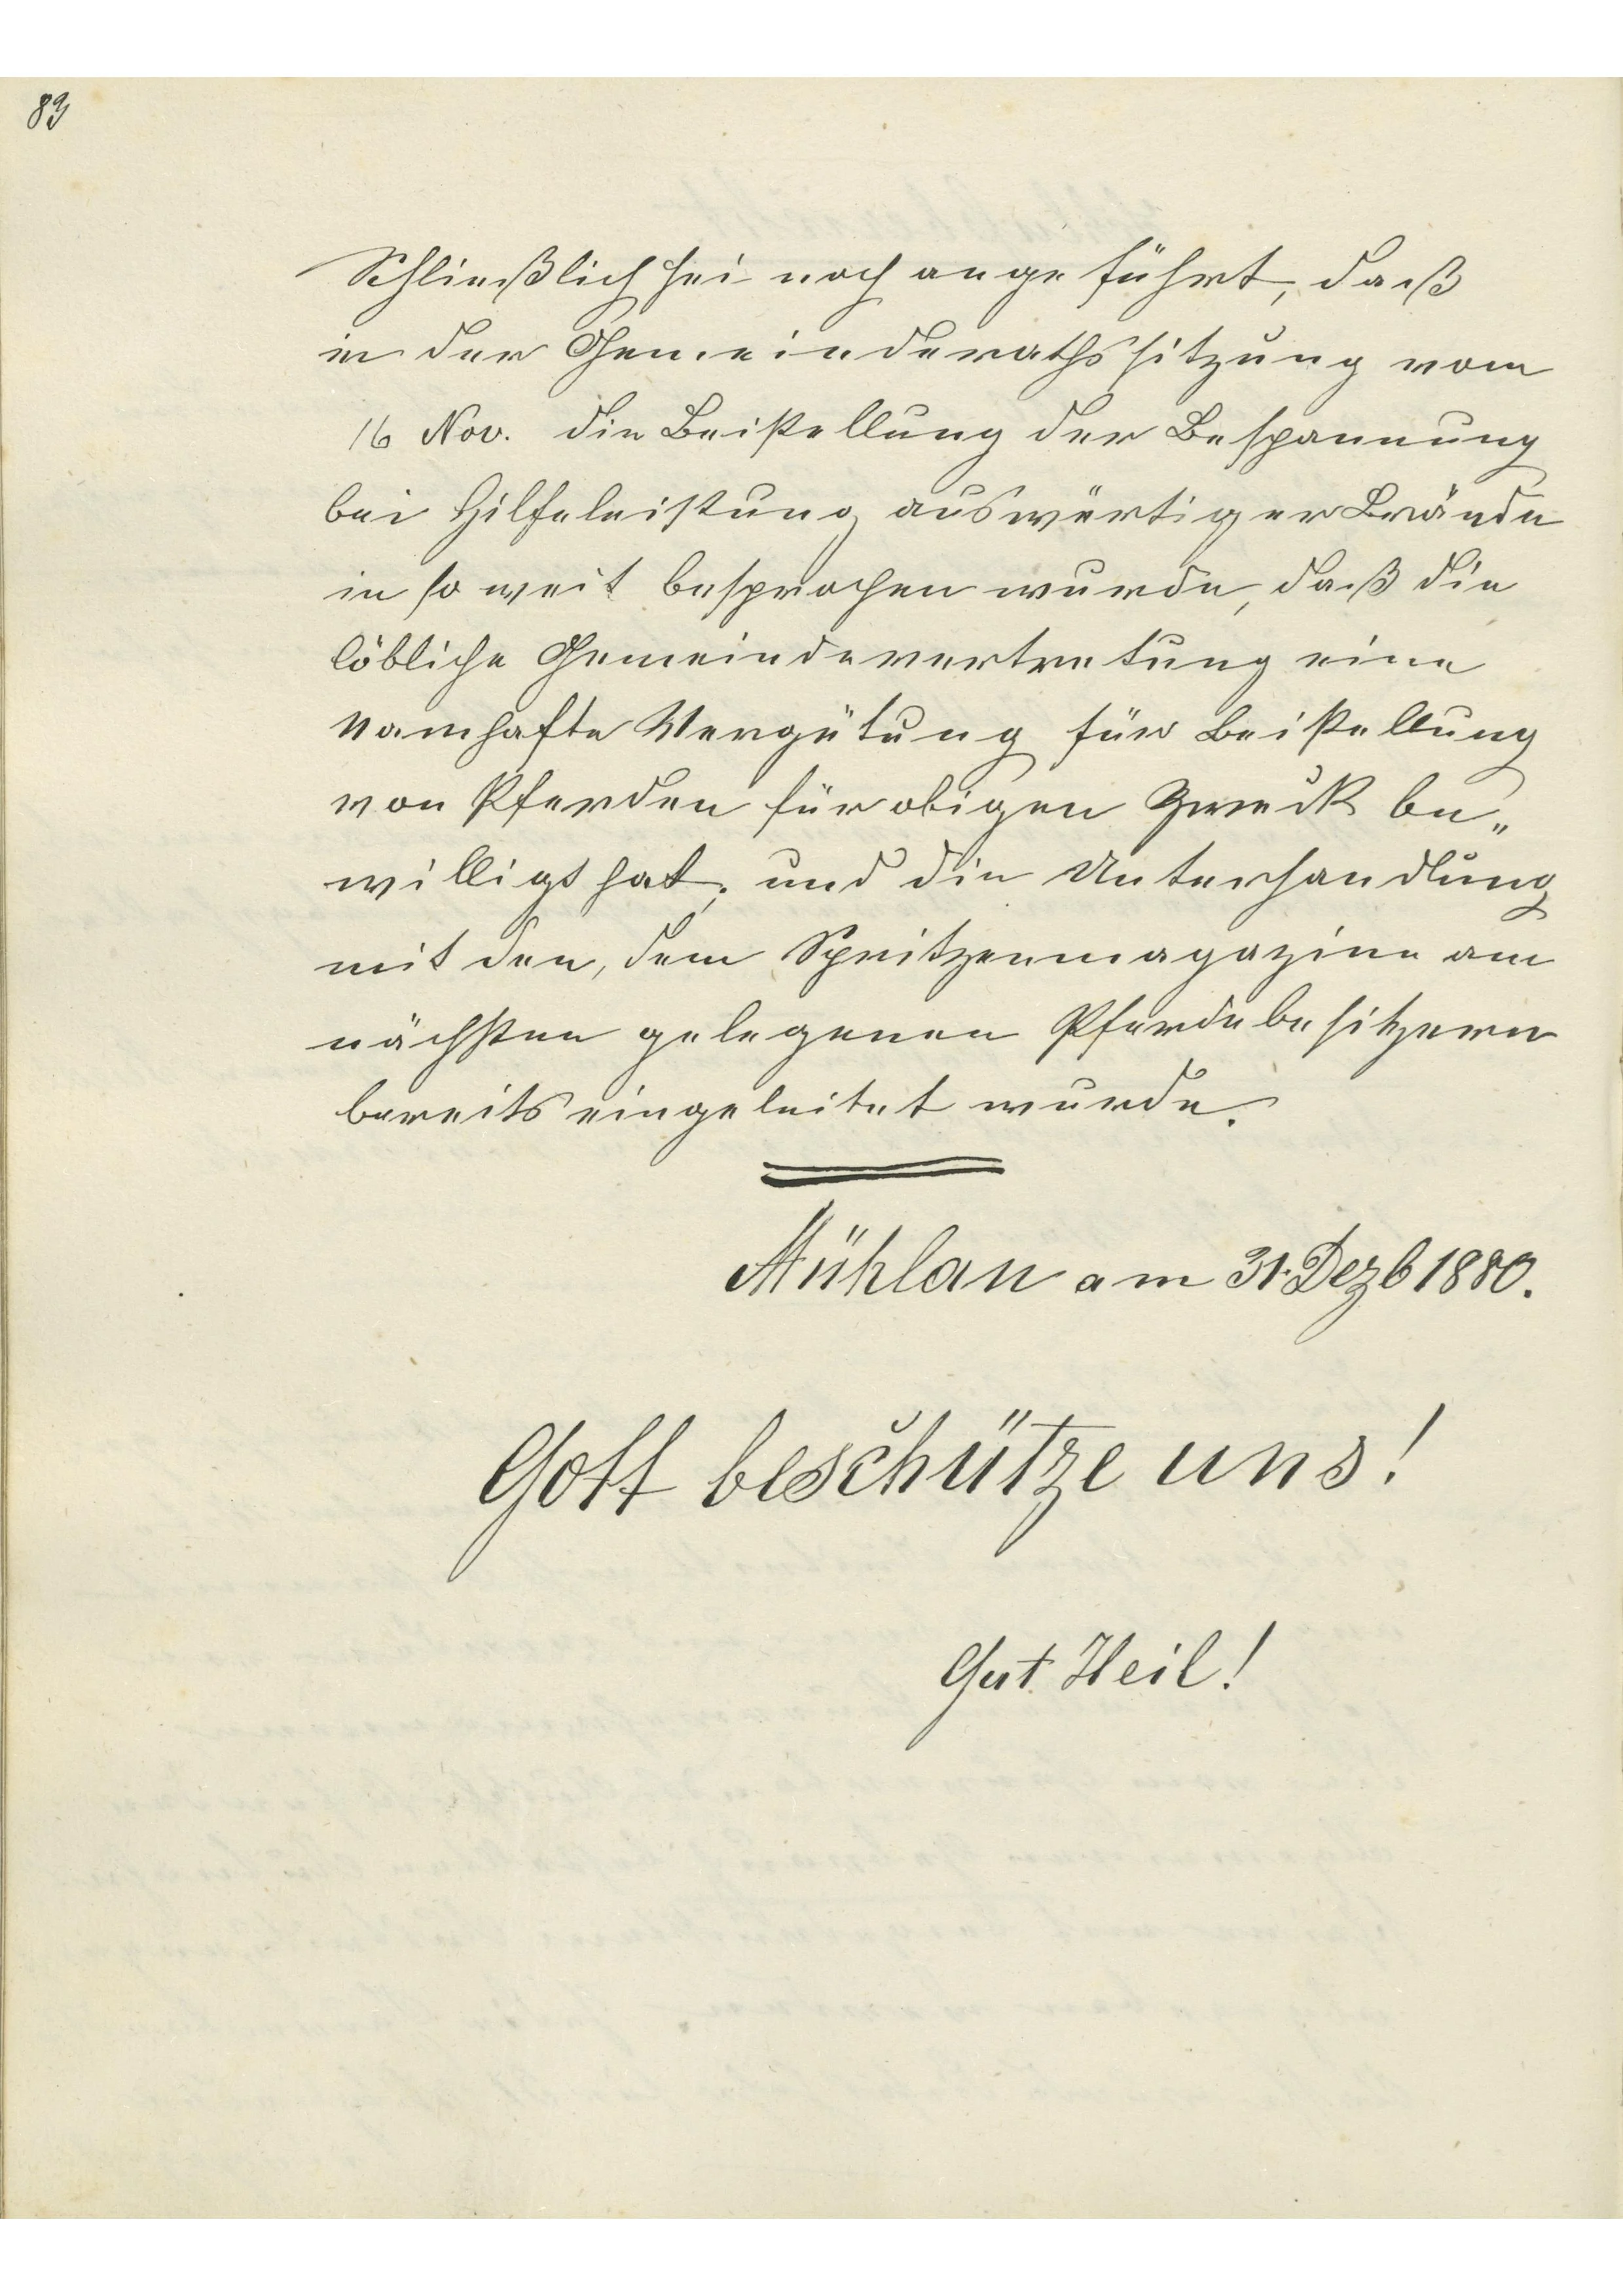 83
Schließlich sei noch angeführt, daß
in der Gemeinderathssitzung vom
16 Nov. die Beistellung der Bespannung
bei Hilfeleistung auswärtiger Brände
in so weit besprochen wurde, daß die
löbliche Gemeindevertretung eine
namhafte Vergütung für Beistellung
von Pferden für obigen Zweck be„
willigt hat, und die Unterhandlung
mit den, dem Spritzenmagazine am
nächsten gelegenen Pferdebesitzern
bereits eingeleitet wurde.
Mühlau am 31. Dezb 1880.
Gott beschütze uns!
Gut Heil!